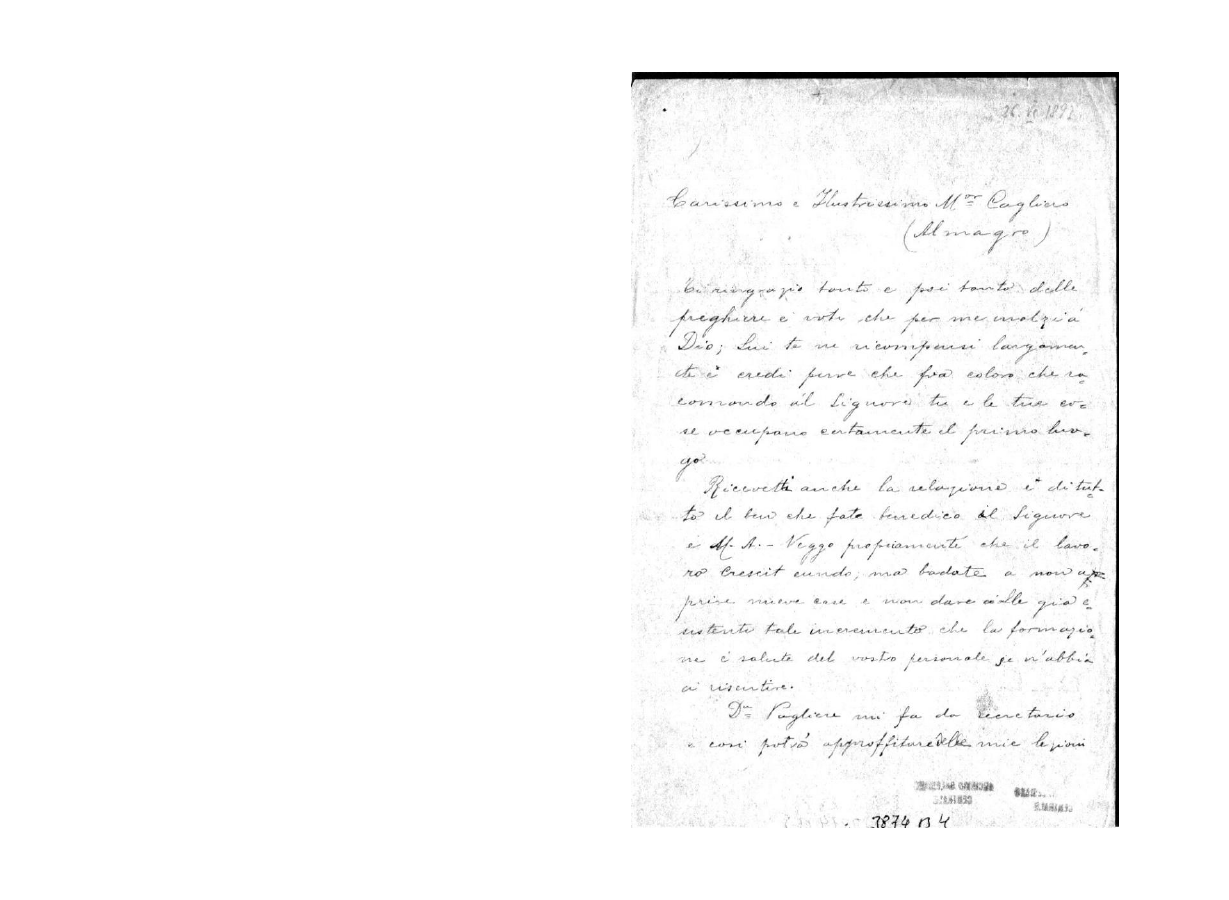 26. VI. 1892
Carissimo e Ilustrissimo M.or Cagliero
(Almagro)
Ti ringrazio tanto e poi tanto delle
preghiere e voti che per me inalzi a
Dio; Lui te ne ricompensi largamen-
te e credi pure che fra coloro che ra-
comando al Signore tu e le tue co-
se occupano certamente il primo luo-
go.
Ricevetti anche la relazione e di tut-
to il ben che fate benedico il Signore
e M. A. - Veggo propiamente che il lavo-
ro crescit eundo; ma badate a non a-
prire nuove case e non dare alle già e-
sistenti tale incremento che la formazio-
ne e salute del vostro personale se n'abbia
a risentire.
Dn Pagliere mi fa da secretario
e così potrà approffitare delle mie lezioni
3874 B 4